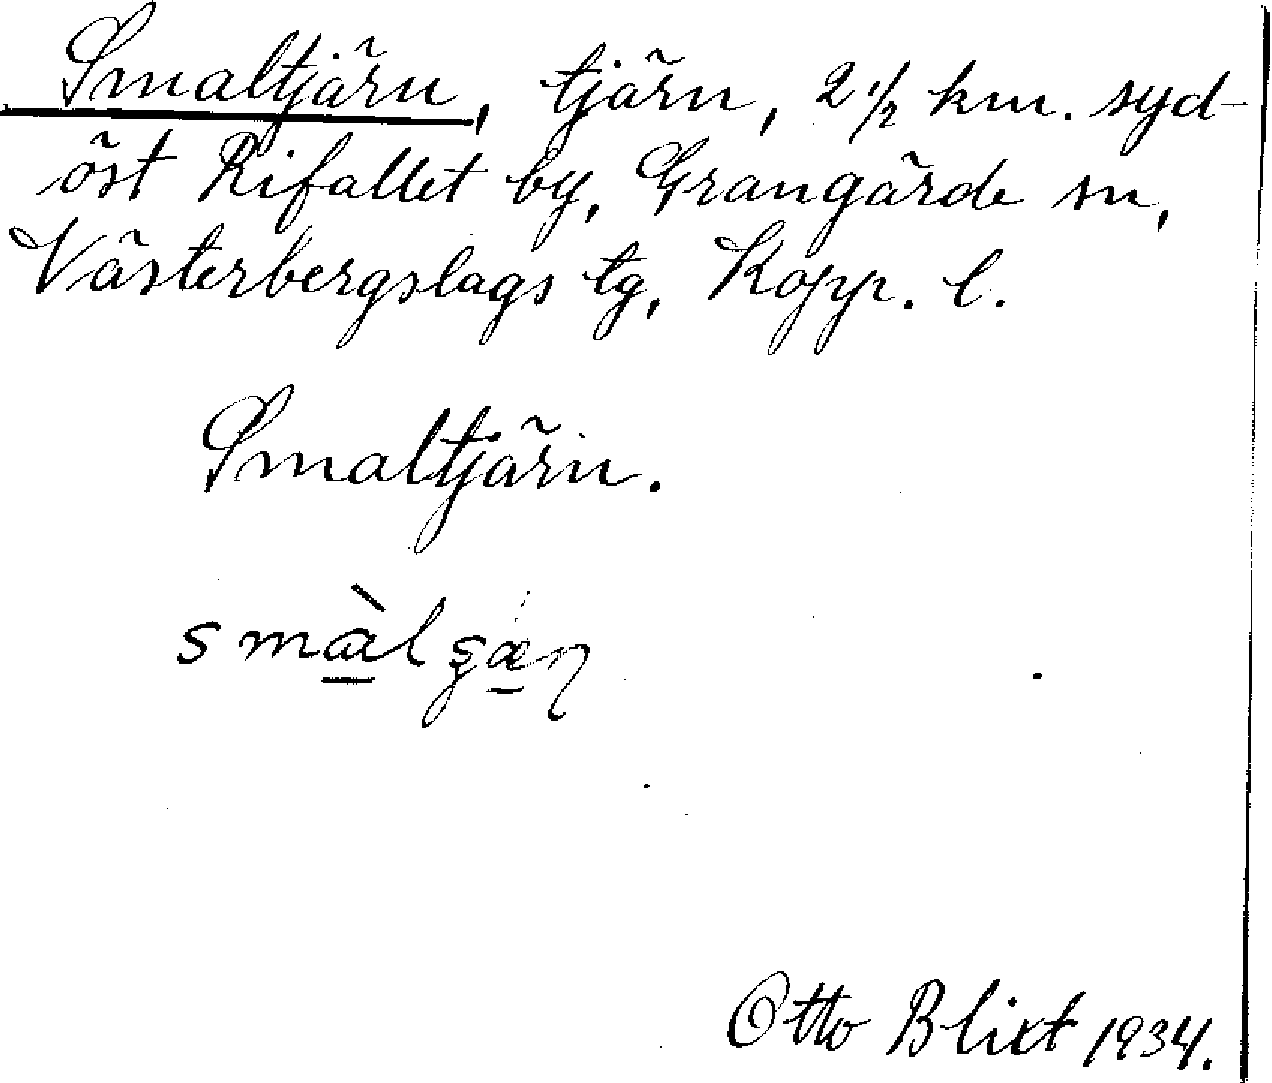 Smaltjärn, tjärn, 2 1/2 km. syd-
öst Rifallet by, Grangärde sn,
Västerbergslags tg, Kopp. l.
Smaltjärn.
Otto Blixt 1934.